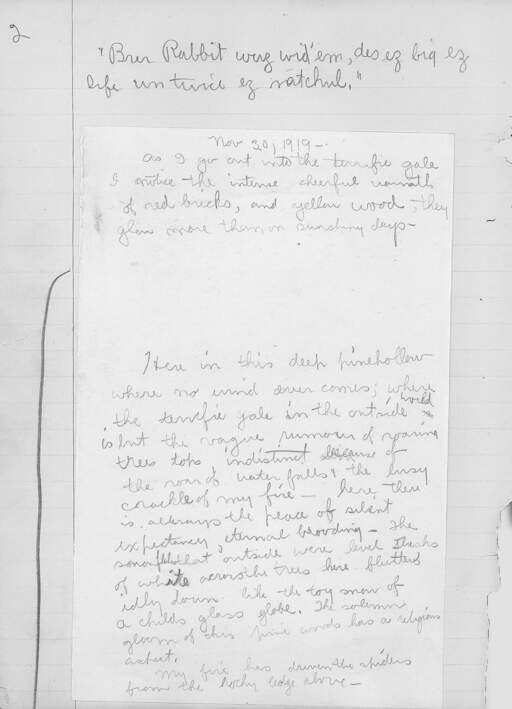 2
"Brer Rabbit wuz wid 'em, des ez big ez
life un twice ez natchul."
Nov 20, 1919 -
As I go out into the terrific gale
I notice the intense cheerful warmth
of red bricks, and yellow wood, they
glow more than on sunshiny days -
Here in this deep pinehollow
where no wind ever comes; where
the terrific gale in the outside world
is but the vague rumour of roaring
trees tops indistinct because of
the roar of water falls & the busy
crackle of my fire - here then
is always the peace of silent
expectancy & eternal brooding - The
snow that outside were level
of white across the trees here flutters
idly down like the toy snow of
a childs glass globe. The solemn
gloom of this pine woods has a religious
aspect.
My fire has driven the spiders
from the rocky ledge above -